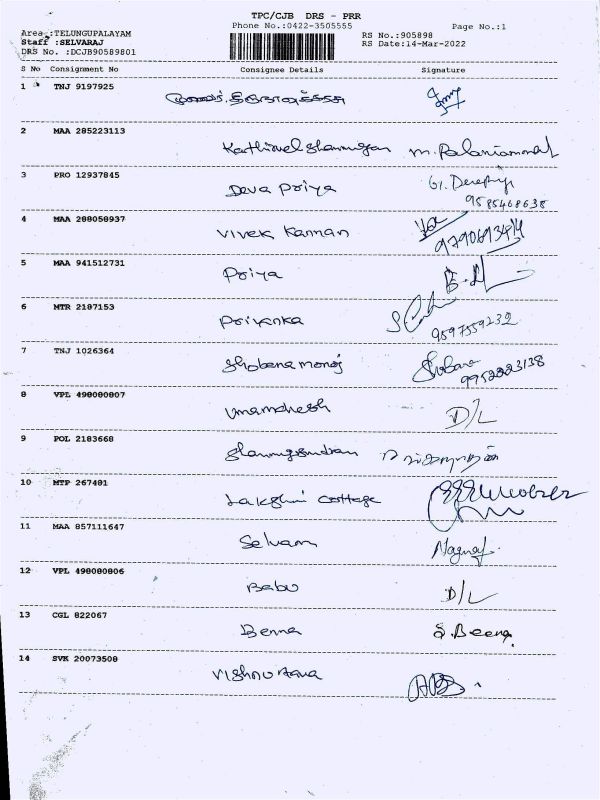 TPC/CJB DRS - PRR
Phone No.:0422-3505555
Page No.:1
Area :TELUNGUPALAYAM
Staff :SELVARAJ
DRS No. :DCJB90589801
RS No.:905898
RS Date:14-Mar-2022
S No Consignment No Consignee Details Signature
1 TNJ 9197925
2 MAA 285223113
Kathirvel Shanmugan M. Palaniammal
3 PRO 12937845
Deva Priya
9585468638
4 MAA 288058937
Vivek Kannan
5 MAA 941512731
Priya
6 MTR 2187153
Priyanka
9597559232
7 TNJ 1026364
Shobana monoj Shobana
9952223138
8 VPL 498080807
Umamahesh D/L
9 POL 2183668
10 MTP 267481
Lakshmi Cottage
11 MAA 857111647
Selvam
12 VPL 498080806
Babu D/L
13 CGL 822067
Beena S. Beena
14 SVK 20073508